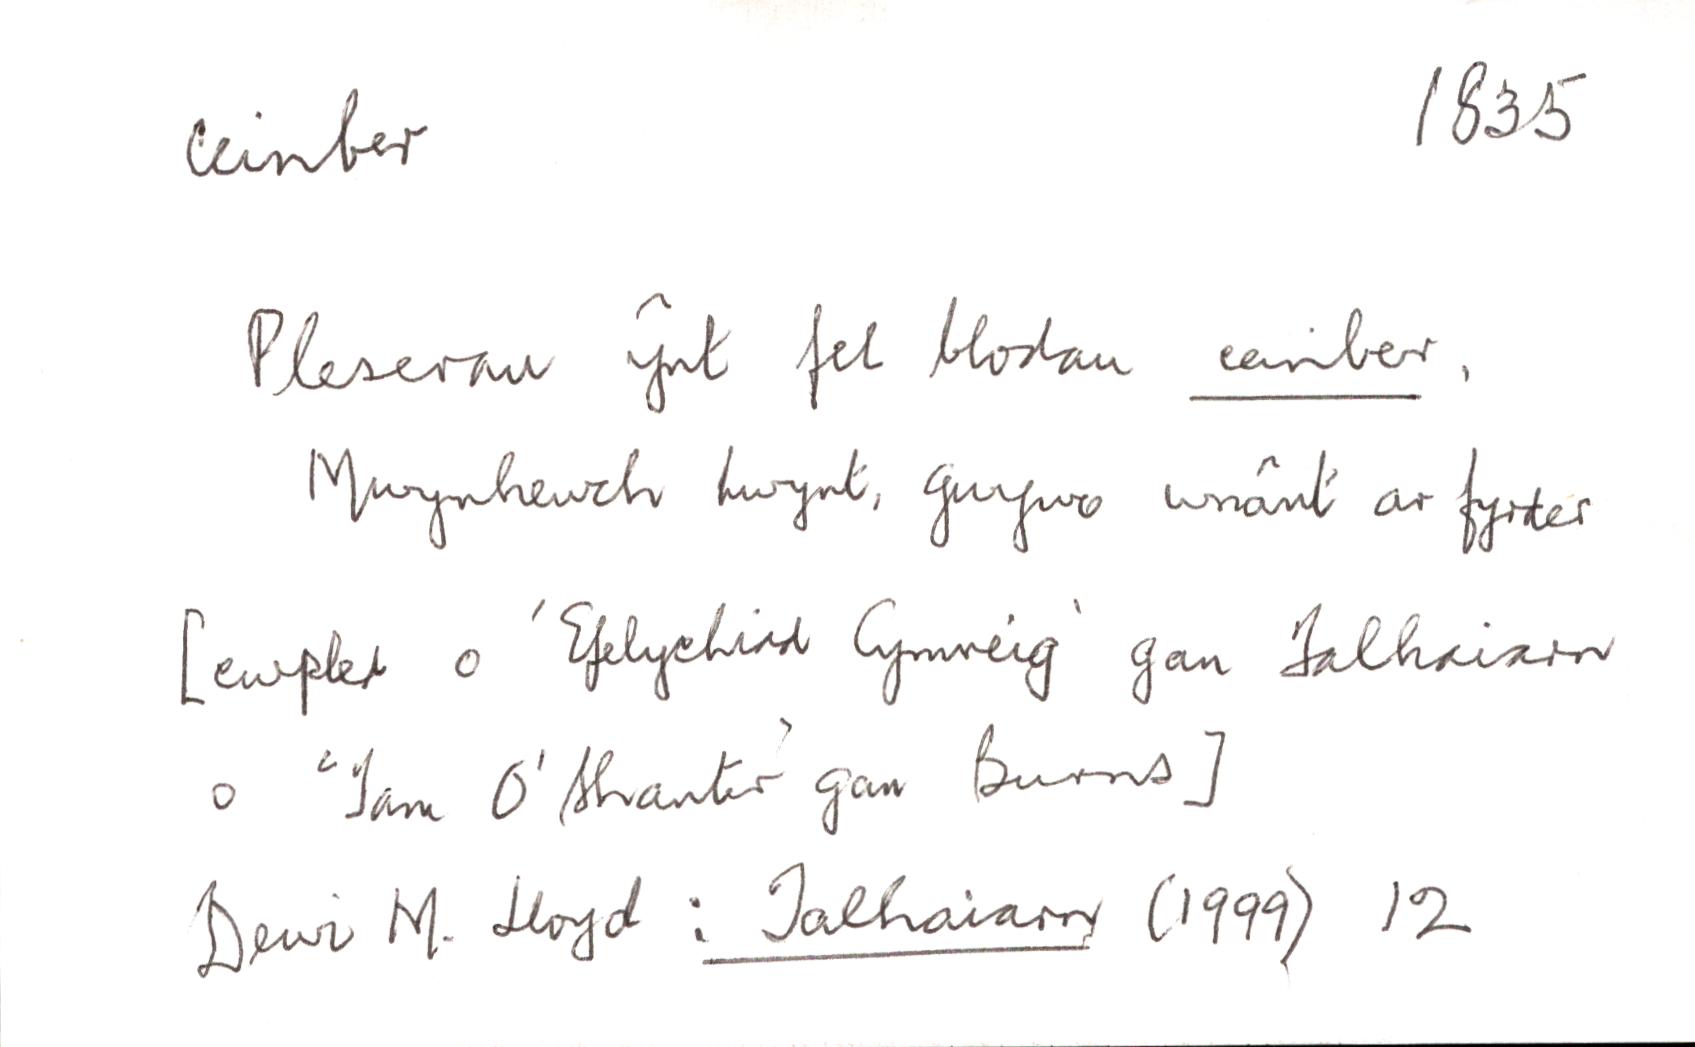 ceinber 1835
Pleserau ŷnt fel blodau ceinber,
Mwynhewch hwynt, gwywo wnânt ar fyrder
[cwpled o 'Efelychiad Cymreig' gan Talhaiarn
o 'Tam O'Shanter' gan Burns]
Dewi M. Lloyd : Talhaiarn (1999) 12